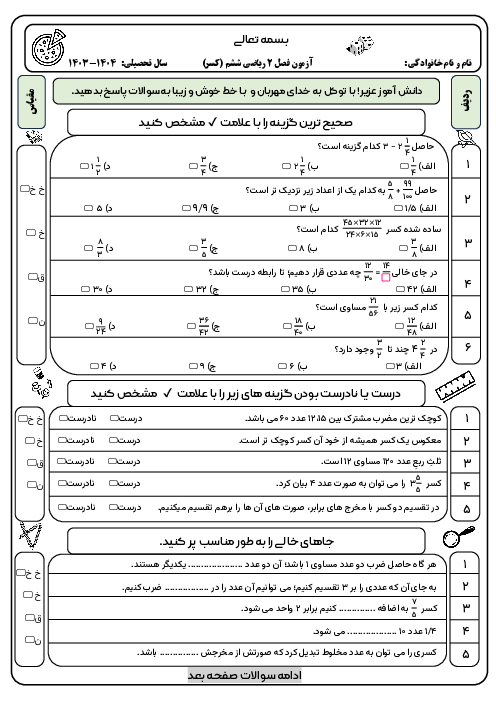 بسمه تعالی
نام و نام خانوادگی: آزمون فصل ۲ ریاضی ششم (کسر) سال تحصیلی: ۱۴۰۴-۱۴۰۳
ردیف
دانش آموز عزیز! با توکل به خدای مهربان و با خط خوش و زیبا به سوالات پاسخ بدهید.
مقیاس
صحیح ترین گزینه را با علامت ✓ مشخص کنید
۱ حاصل ۲ ۱/۴ - ۳ کدام گزینه است؟
الف) ۱/۴ ب) ۲ ۱/۴ ج) ۳/۴ د) ۱ ۱/۲
۲ حاصل ۹۹/۱۰۰ + ۵/۸ به کدام یک از اعداد زیر نزدیک تر است؟
الف) ۱/۵ ب) ۳ ج) ۹/۹ د) ۵
۳ ساده شده کسر ۴۵×۳۲×۱۲/۲۴×۶×۱۵ کدام است؟
الف) ۳/۸ ب) ۸ ج) ۳/۵ د) ۸/۳
۴ در جای خالی ۱۴/□ = ۱۲/۳۰ چه عددی قرار دهیم؛ تا رابطه درست باشد؟
الف) ۴۲ ب) ۳۵ ج) ۳۲ د) ۳۰
۵ کدام کسر زیر با ۲۱/۵۶ مساوی است؟
الف) ۱۲/۴۸ ب) ۱۸/۴۰ ج) ۳۶/۴۲ د) ۹/۲۴
۶ در ۴ ۲/۴ چند تا ۳/۲ وجود دارد؟
الف) ۳ ب) ۶ ج) ۹ د) ۴
خ خ
خ
ق
ن
درست یا نادرست بودن گزینه های زیر را با علامت ✓ مشخص کنید
۱ کوچک ترین مضرب مشترک بین ۱۲،۱۵ عدد ۶۰ می باشد. درست نادرست
۲ معکوس یک کسر همیشه از خود آن کسر کوچک تر است. درست نادرست
۳ ثلث ربع عدد ۱۲۰ مساوی ۱۲ است. درست نادرست
۴ کسر ۳ ۵/۵ را می توان به صورت عدد ۴ بیان کرد. درست نادرست
۵ در تقسیم دو کسر با مخرج های برابر، صورت های آن ها را برهم تقسیم میکنیم. درست نادرست
خ خ
خ
ق
ن
جاهای خالی را به طور مناسب پر کنید.
۱ هر گاه حاصل ضرب دو عدد مساوی ۱ باشد؛ آن دو عدد .................... یکدیگر هستند.
۲ به جای آن که عددی را بر ۳ تقسیم کنیم؛ می توانیم آن عدد را در ................ ضرب کنیم.
۳ کسر ۷/۵ به اضافه ............. کنیم برابر ۲ واحد می شود.
۴ ۱/۴ عدد ۱۰ .................... می شود.
۵ کسری را می توان به عدد مخلوط تبدیل کرد که صورتش از مخرجش .............. باشد.
خ خ
خ
ق
ن
ادامه سوالات صفحه بعد